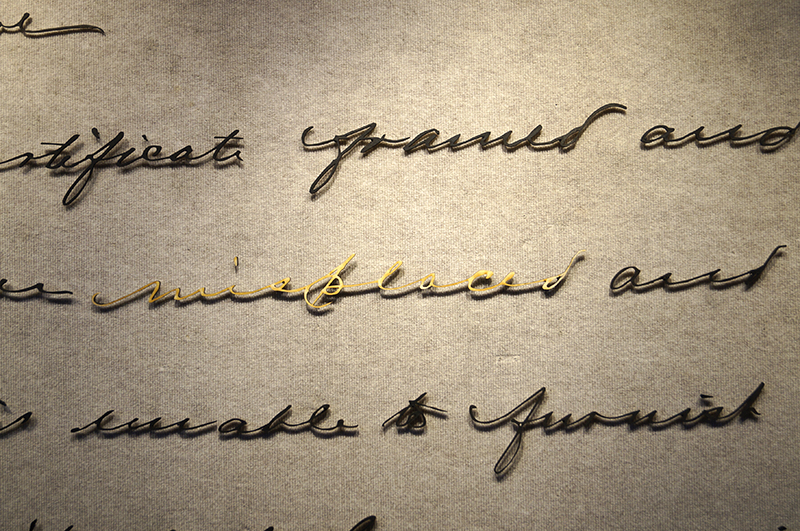 certificate framed and
misplaced and
is unable to furnish